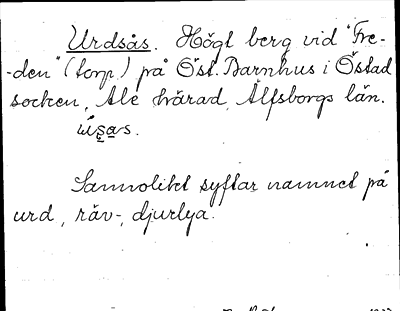 Urdsås. Högt berg vid "Fre-
-den" (torp) på Öst. Barnhus i Östad
socken, Ale härad, Älfsborgs län.
Sannolikt syftar namnet på
urd, räv-, djurlya.